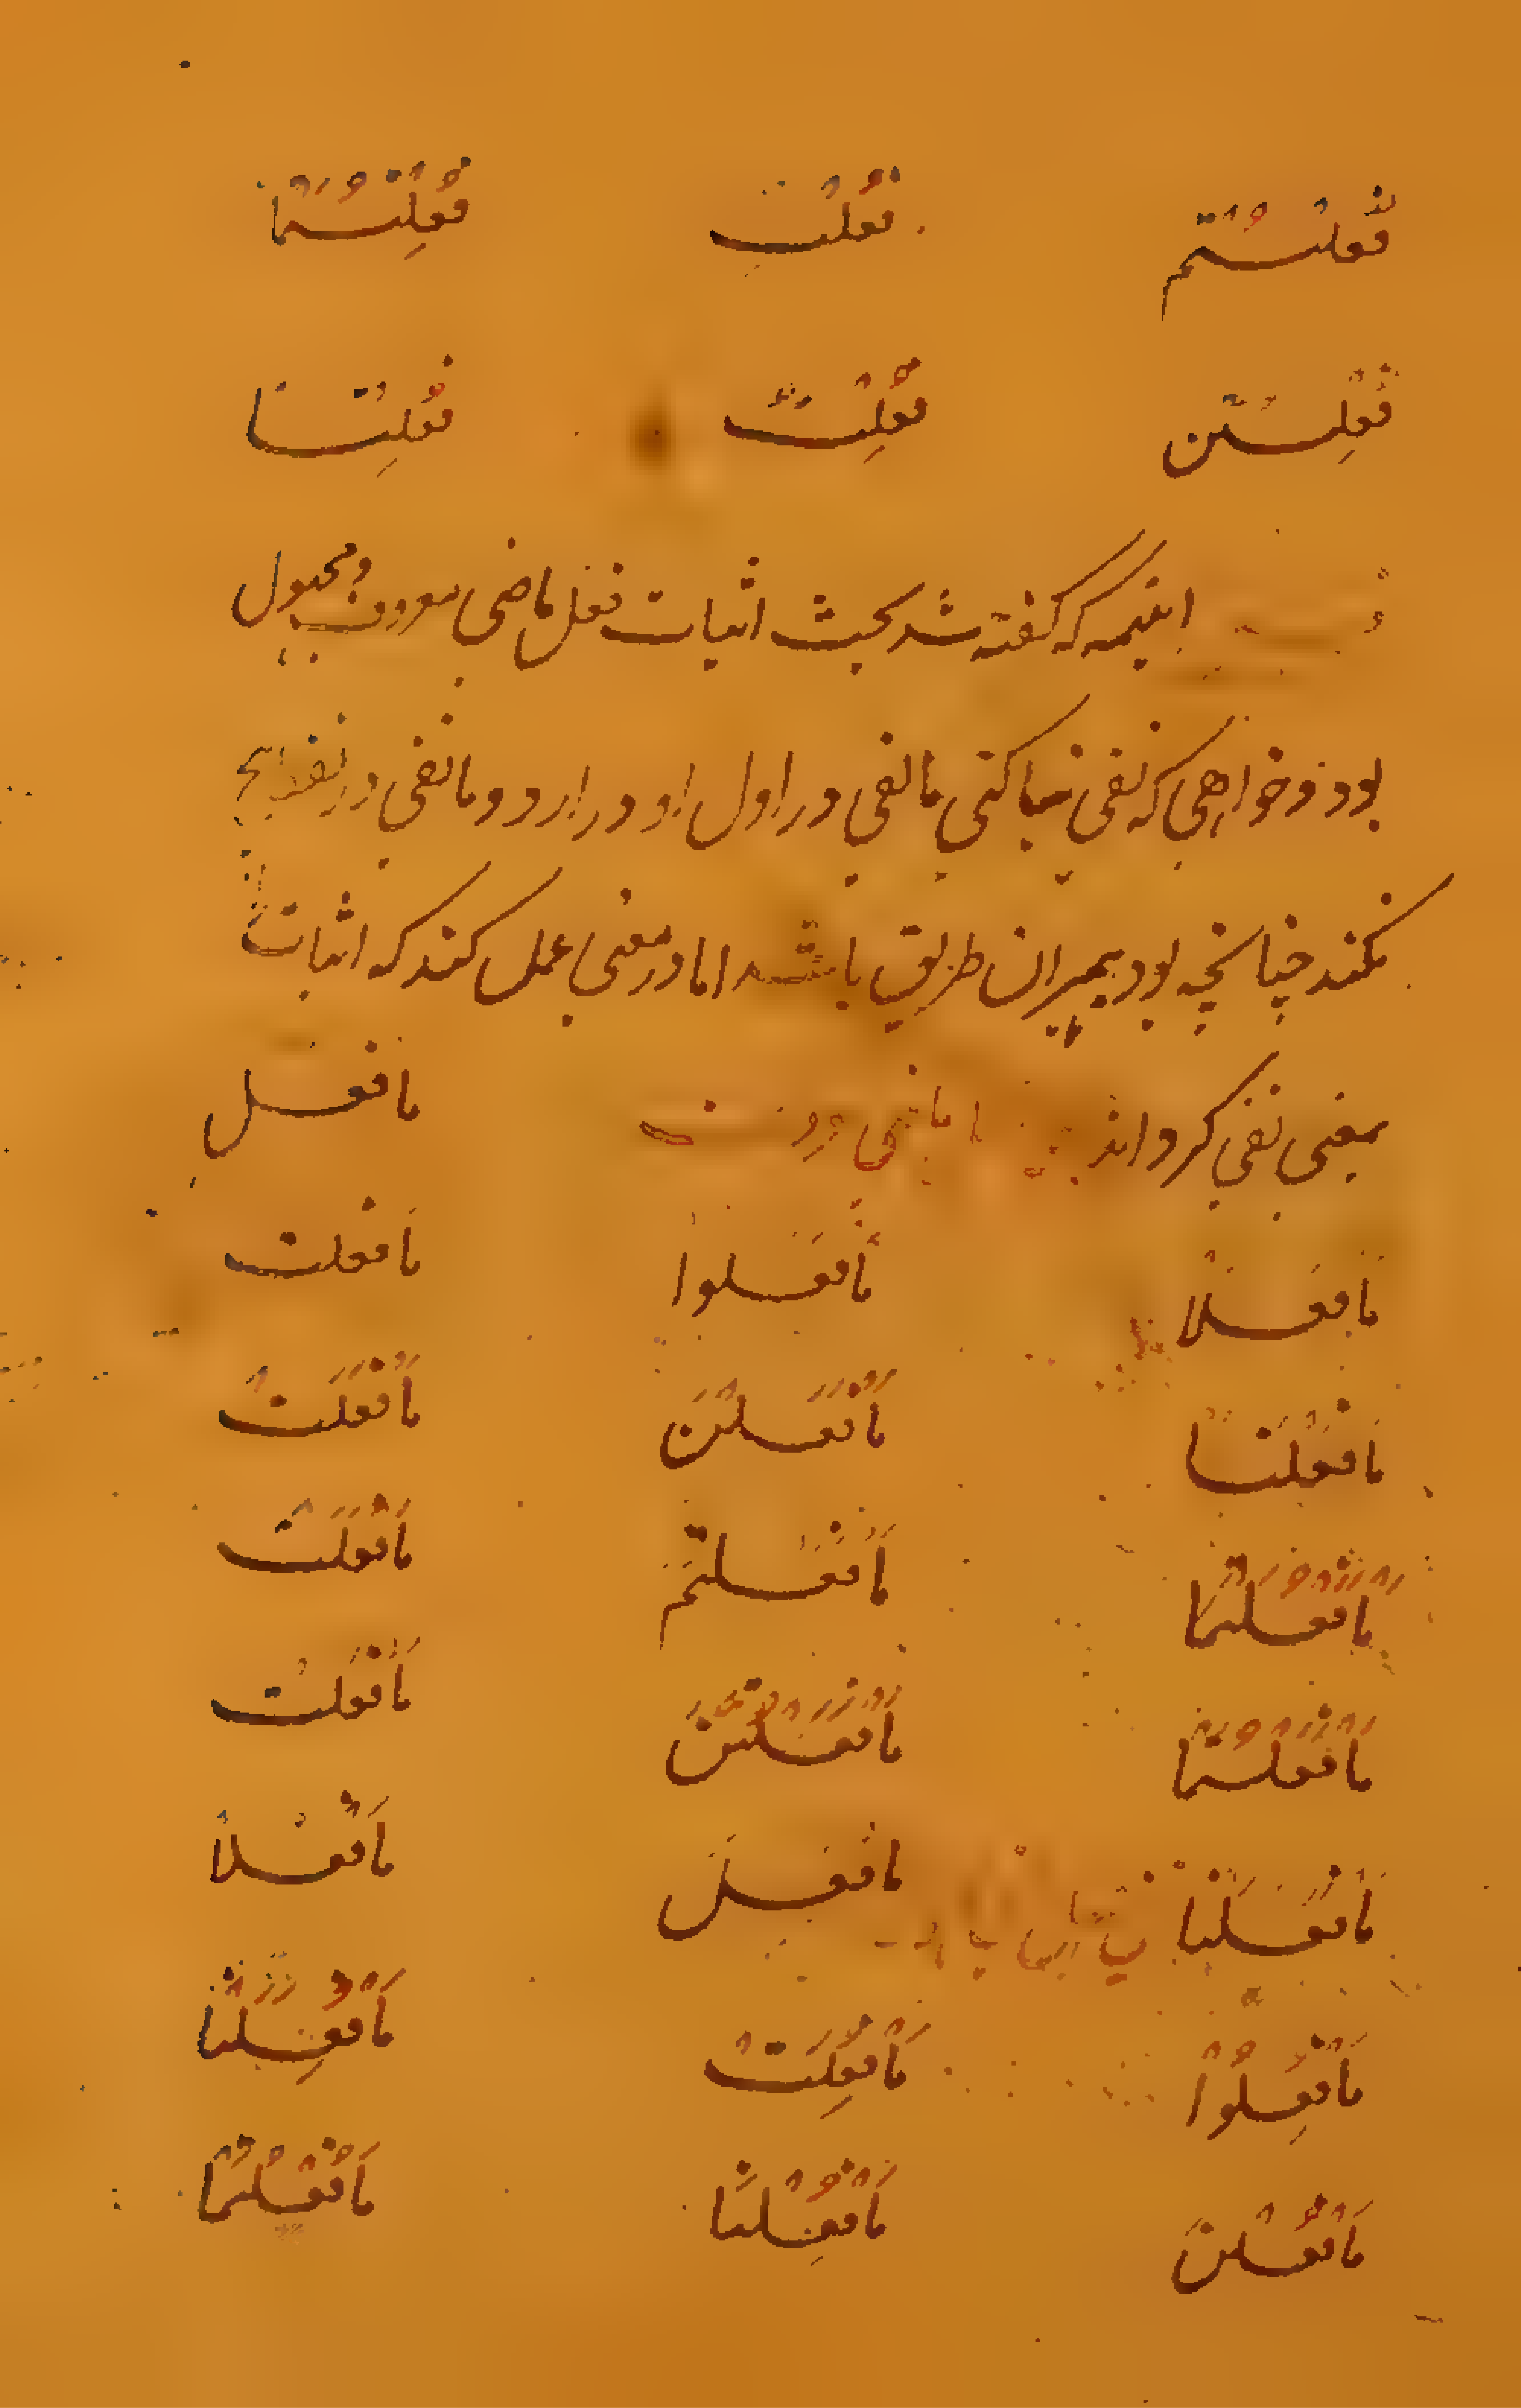 فُعِلْتُمْ فُعِلْتِ فُعِلْتُمَا
فُعِلْتُنَّ فُعِلْتُ فُعِلْنَا
اینهمه که گفته شد بحث اثبات فعل ماضی معروف ومجهول
بود وخواهی که نفی بنا کنی ما نفی در اول او در ار د و ما نفی در لفظ هیچ
نکند چنانچه بود بهمبران طریق باشد اما در معنی عمل کند که اثبات
بمعنی نفی گرداند مَا فعل
مَا فَعَلَا مَا فَعَلُوْا مَا فعلت
مَا فَعَلَتَا مَا فَعَلْنَ مَا فَعَلْتَ
مَا فَعَلْتُمَا مَا فَعَلْتُمْ مَا فَعَلْتِ
مَا فَعَلْتُمَا مَا فَعَلْتُنَّ مَا فَعَلْتُ
مَا فَعَلْنَا مَا فُعِلَ مَا فُعِلَا
مَا فُعِلُوْا مَا فُعِلَتْ مَا فُعِلَتَا
مَا فُعِلْنَ مَا فُعِلْتَ مَا فُعِلْتُمَا